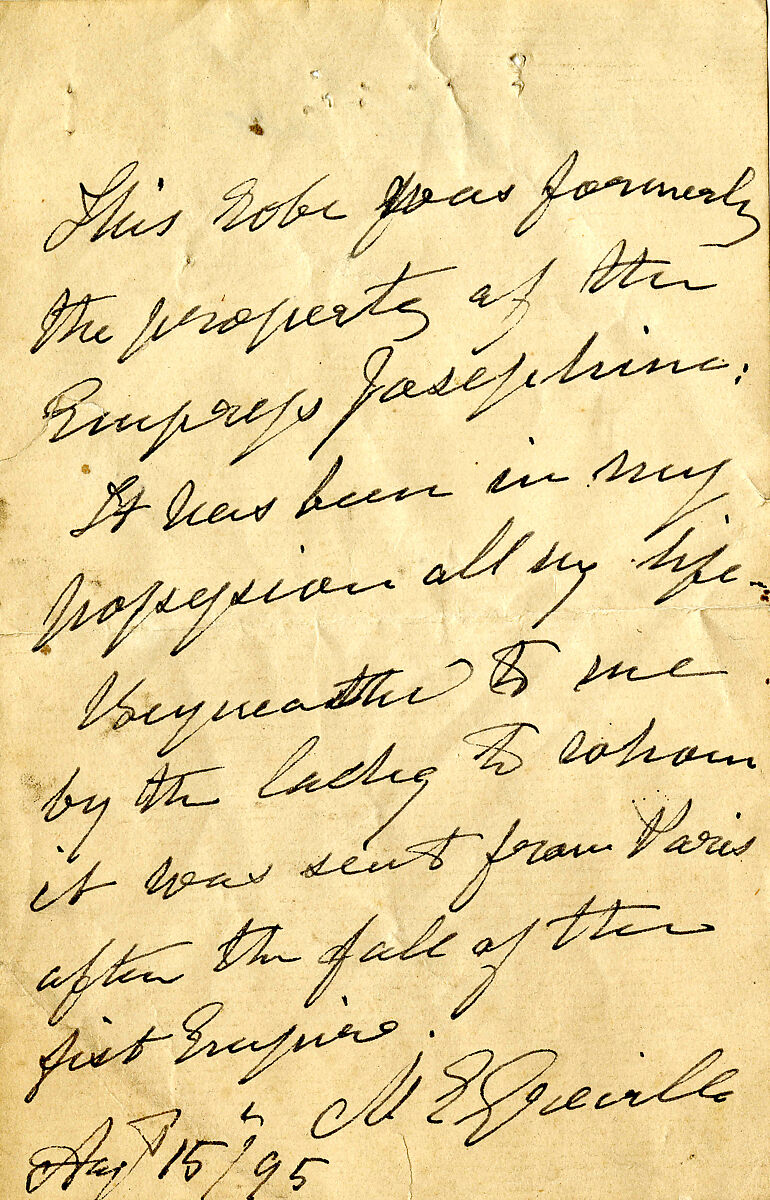 This robe was formerly
the property of the
Empress Josephine.
It has been in my
possession all my life.
Bequeathed to me
by the lady to whom
it was sent from Paris
after the fall of the
fist Empire.
M E Greville
Augt 15th/95